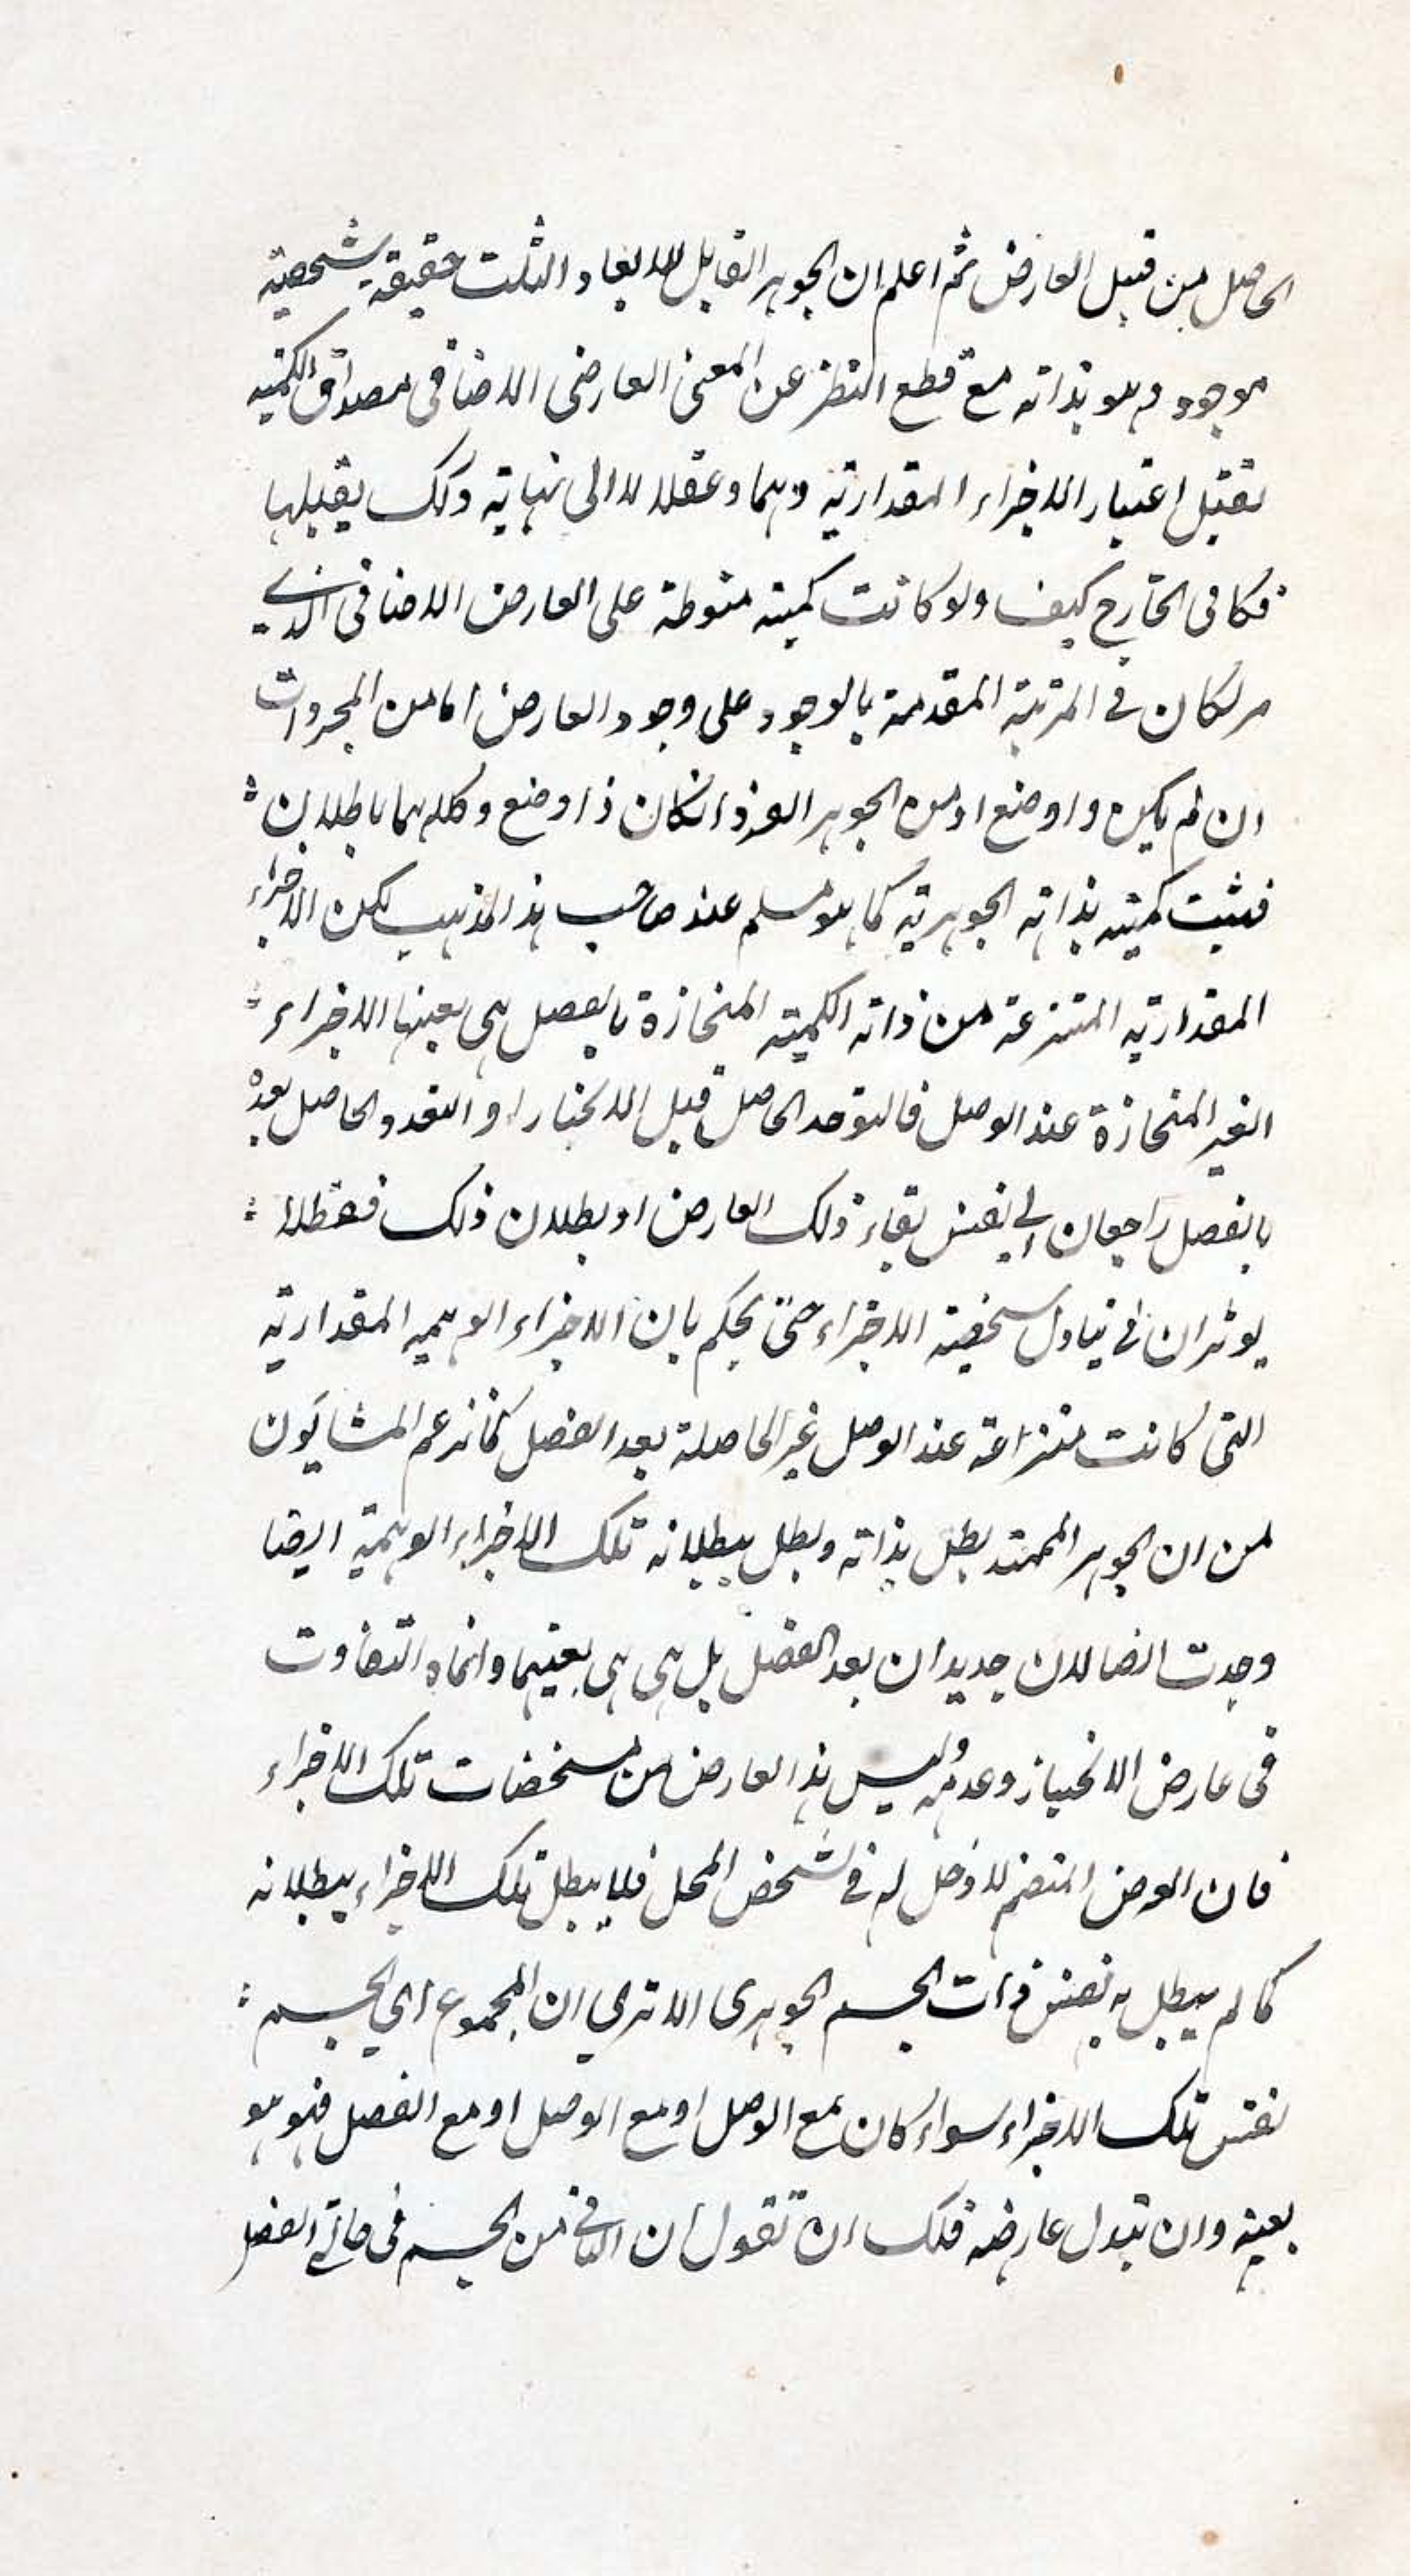 الحاصل من قبل العارض ثم اعلم ان الجوهر القابل للابعاد الثلث حقيقة شخصية
موجود وهو بذاته مع قطع النظر عن المعنى العارضى الاضافى مصداق الكمية
يقبل اعتبار الاجزاء المقدارية وهما وعقلا لا الى نهاية وكك يقبلها
فكا فى الخارج كيف ولو كانت كمية منوطة على العارض الاضافى الذى
مر لكان فى المرتبة المقدمة بالوجود على وجود العارض اما من المجردات
ان لم يكن ذا وضع او من الجوهر الفرد انكان ذا وضع وكلاهما باطلان
فثبت كميته بذاته الجوهرية كما هو مسلم عند صاحب هذا المذهب لكن الاجزاء
المقدارية المنتزعة من ذاته الكمية المنحازة بالفصل هى بعينها الاجزاء
الغير المنحازة عند الوصل فالتوحد الحاصل قبل الانحياز او التعدد الحاصل بعده
بالفصل راجعان الى نفس بقاء ذلك العارض او بطلان ذلك فقط لا
يوثران فى تبادل شخصية الاجزاء حتى يحكم بان الاجزاء الوهمية المقدارية
التى كانت منتزاعة عند الوصل غير الحاصلة بعد الفصل كما زعم المشايون
من ان الجوهر الممتد بطل بذاته وبطل ببطلانه تلك الاجزاء الوهمية ايضا
وجدت اتصالان جديدان بعد الفصل بل هى هى بعينها وانما التفاوت
فى عارض الانحياز وعدمه وليس هذا العارض من مشخصات تلك الاجزاء
فان العرض المنضم لا دخل له فى تشخص المحل فلا يبطل تلك الاجزاء ببطلانه
كما لم يبطل به نفس ذات الجسم الجوهرى الا ترى ان المجموع اى الجسم
نفس تلك الاجزاء سواء كان مع الوصل او مع الوصل او مع الفصل فهو هو
بعينه وان تبدل عارضه فلك ان تقول ان الباقى من الجسم فى حالتى الفصل